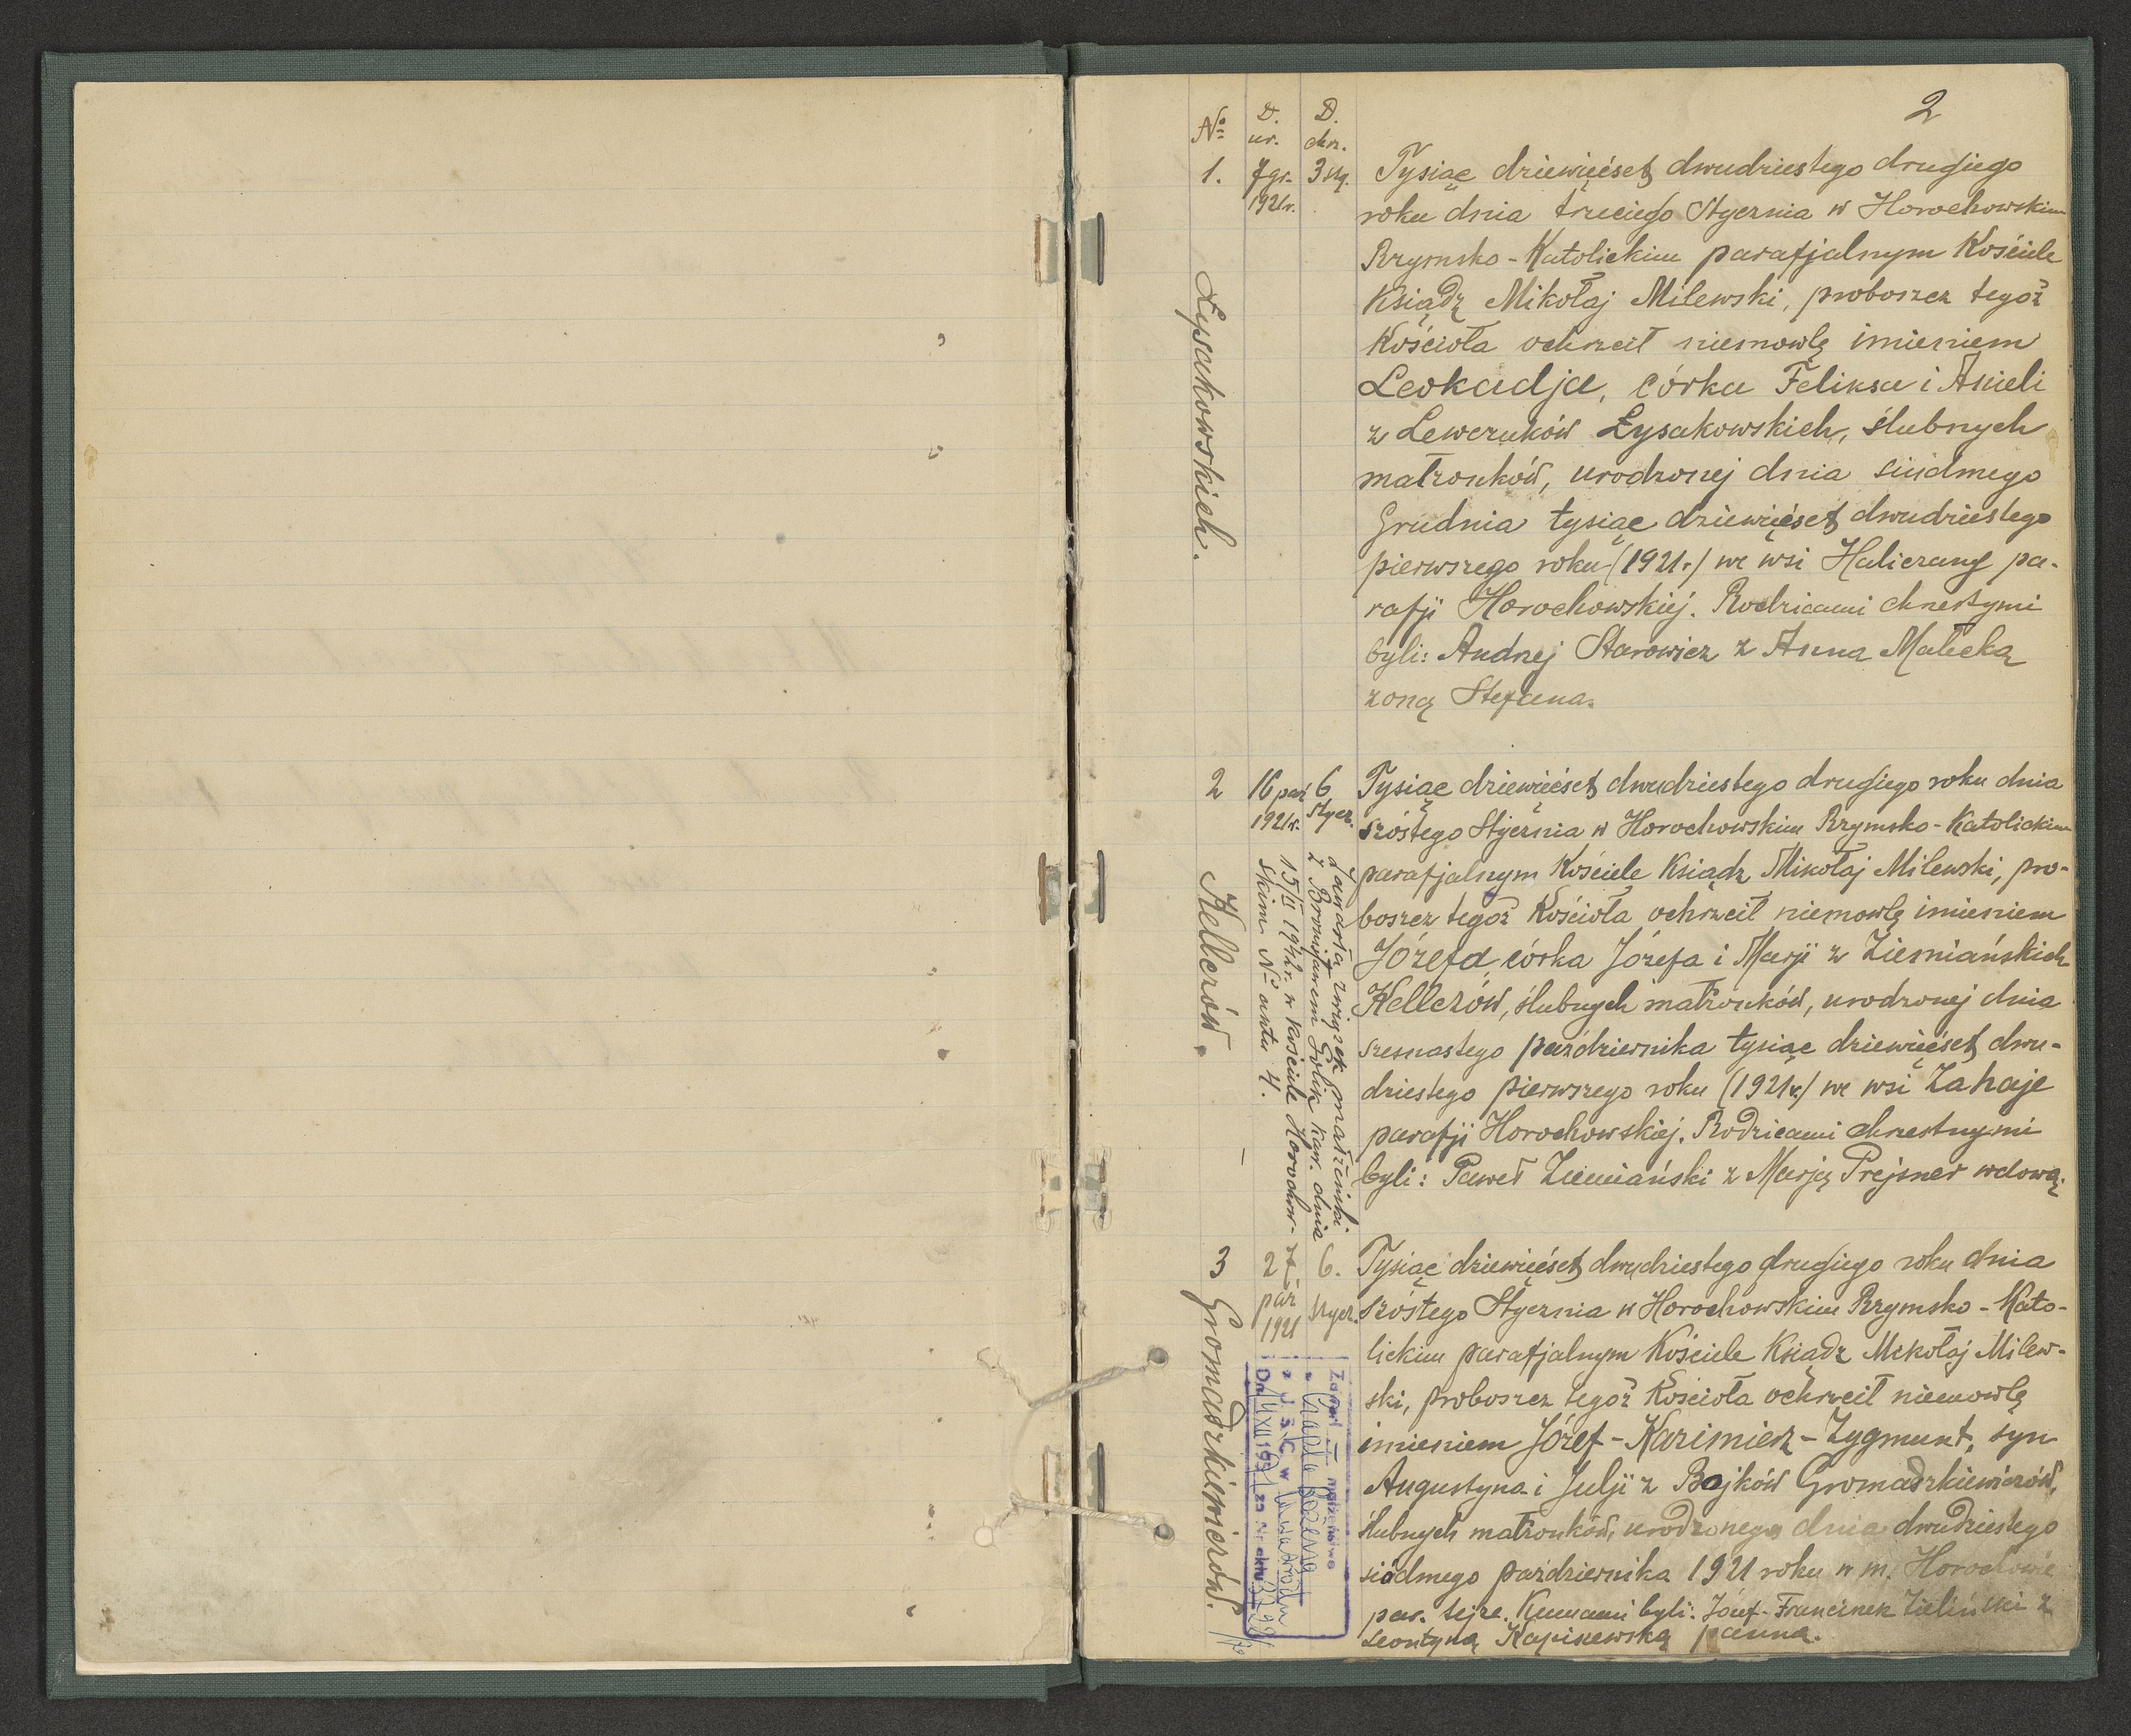 2
No
D. ur.
D. chrz.
1.
7 gr. 1921r.
3 sty.
Łysakowskich.
Tysiąc dziewięćset dwudziestego drugiego
roku dnia trzeciego Stycznia w Horochowskim
Rzymsko-Katolickim parafjalnym Kościele
Ksiądz Mikołaj Milewski, proboszcz tegoż
Kościoła ochrzcił niemowlę imieniem
Leokadja, córka Feliksa i Anieli
z Leweruków Łysakowskich, ślubnych
małżonków, urodzonej dnia siódmego
Grudnia tysiąc dziewięćset dwudziestego
pierwszego roku (1921r) we wsi Haliczany pa-
rafji Horochowskiej. Rodzicami chrestymi
byli: Andrzej Starowicz z Anna Małecką
żoną Stefana.
2
16 paź 1921r.
6 stycz.
Kellerów.
Zawarła związek małżeński
z Bronisławem Golik kaw. dnia
15/II 1942r. w kościele Horochow-
skim No aktu 4.
Tysiąc dziewięćset dwudziestego drugiego roku dnia
szóstego Stycznia w Horochowskim Rzymsko-Katolickim
parafjalnym Kościele Ksiądz Mikołaj Milewski, pro-
boszcz tegoż Kościoła ochrzcił niemowlę imieniem
Józefa córka Józefa i Marji z Ziemiańskich
Kellerów, ślubnych małżonków, urodzonej dnia
szesnastego października tysiąc dziewięćset dwu-
dziestego pierwszego roku (1921r.) we wsi Zahaje
parafji Horochowskiej. Rodzicami chrestnymi
byli: Paweł Ziemiański z Marją Prejsner wdową.
3
27 paź 1921
6. stycz.
Gromadzkiewiczów.
Zawarł II małżeństwo
z
z U.S.C. w
Dn. XII 197 za Nr aktu
Tysiąc dziewięćset dwudziestego drugiego roku dnia
szóstego Stycznia w Horochowskim Rzymsko-Kato-
lickim parafjalnym Kościele Ksiądz Mikołaj Milew-
ski, proboszcz tegoż Kościoła ochrzcił niemowlę
imieniem Józef-Kazimierz-Zygmunt, syn
Augustyna i Julji z Bojków Gromadzkiewiczów,
ślubnych małżonków, urodzonego dnia dwudziestego
siódmego października 1921 roku w m. Horochowie
par. tejże. Kumami byli: Józef-Franciszek Zieliński z
Leontyną Kapiszewską panna.